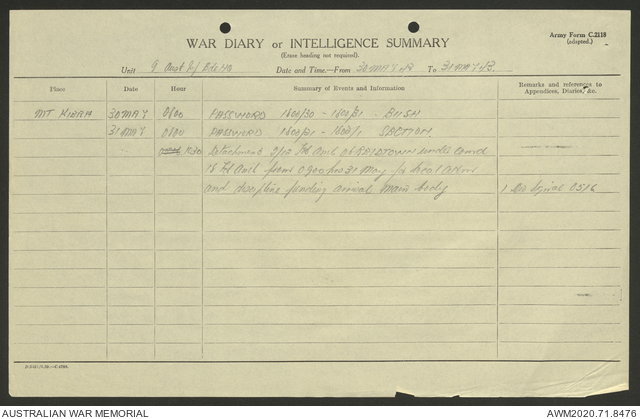 Army Form C.2118
(adapted.)
WAR DIARY or INTELLIGENCE SUMMARY
(Erase heading not required).
Unit 9 Aust Inf Bde HQ Date and Time.—From 30 MAY 43 To 31 MAY 43.
Place Date Hour Summary of Events and Information Remarks and references to
Appendices, Diaries, &c.
MT KIERA 30 MAY 0600 PASSWORD 1600/30 - 1600/31 - BUSH
31 MAY 0600 PASSWORD 1600/31 - 1600/1
1530 Detachment 2/12 Fd Amb at under comd
Fd Amb from 0900 hrs 31 May for local admin
and discipline pending arrival main body 1 Div Signal O516
AUSTRALIAN WAR MEMORIAL AWM2020.71.8476